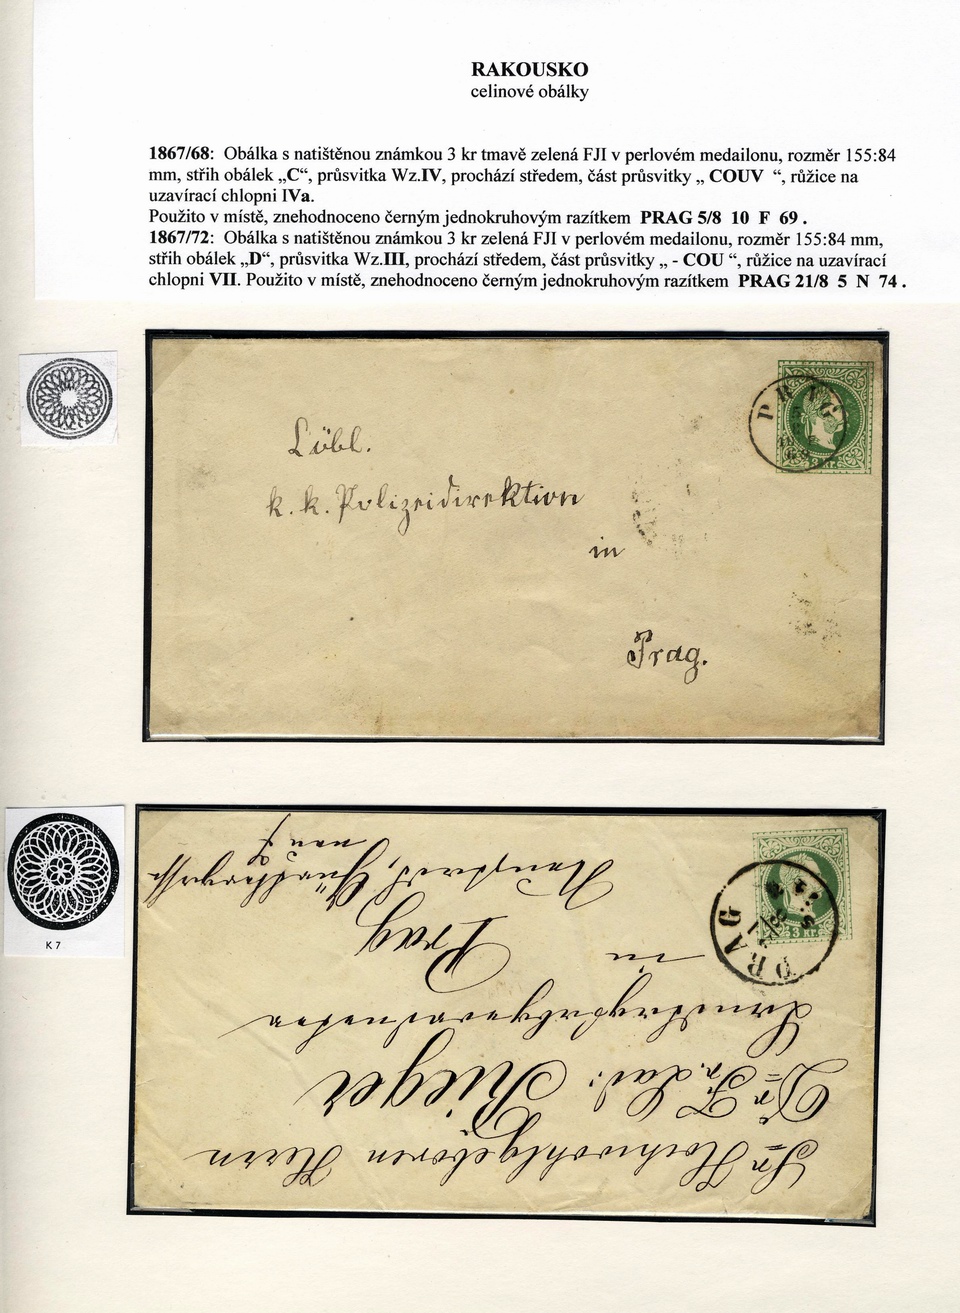 RAKOUSKO
celinové obálky
1867/68: Obálka s natištěnou známkou 3 kr tmavě zelená FJI v perlovém medailonu, rozměr 155:84
mm, střih obálek „C“, průsvitka Wz.IV, prochází středem, část průsvitky „ COUV “, růžice na
uzavírací chlopni IVa.
Použito v místě, znehodnoceno černým jednokruhovým razítkem PRAG 5/8 10 F 69 .
1867/72: Obálka s natištěnou známkou 3 kr zelená FJI v perlovém medailonu, rozměr 155:84 mm,
střih obálek „D“, průsvitka Wz.III, prochází středem, část průsvitky „ - COU “, růžice na uzavírací
chlopni VII. Použito v místě, znehodnoceno černým jednokruhovým razítkem PRAG 21/8 5 N 74 .
PRAG
3 Kr.
Löbl.
k. k. Polizeidirektion
in
Prag.
K 7
PRAG
3 Kr.
Sr Hochwohlgeboren Herrn
Dr. Fr. Lad: Rieger
in
Prag